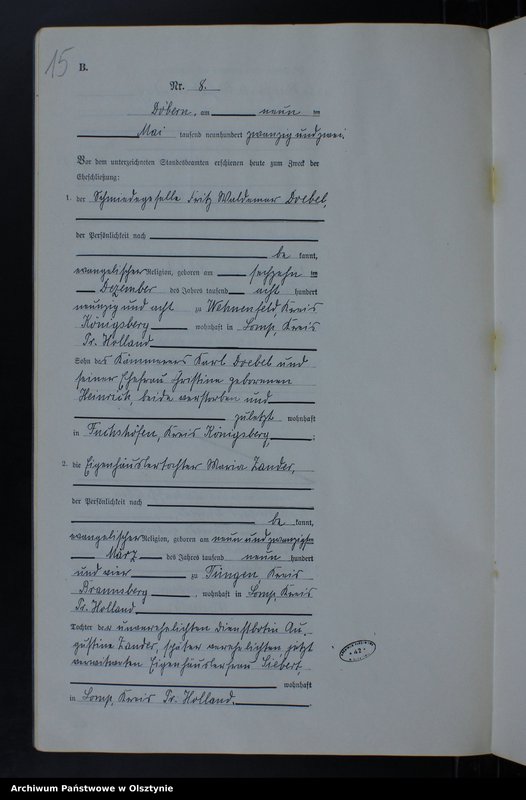 15
B.
Nr. 8.
Döbern, am neun ten
Mai tausend neunhundert zwanzig und zwei.
Vor dem unterzeichneten Standesbeamten erschienen heute zum Zweck der
Eheschließung:
1. der Schmiedegeselle Fritz Waldemar Doebel,
der Persönlichkeit nach
be kannt,
evangelischer Religion, geboren am sechzehn ten
Dezember des Jahres tausend acht hundert
neunzig und acht zu Wehnenfeld, Kreis
Königsberg wohnhaft in Lomp, Kreis
Pr. Holland
Sohn des Kämmerers Karl Doebel und
seiner Ehefrau Christine geborenen
Heinrich, beide verstorben und
zuletzt wohnhaft
in Fuchshöfen, Kreis Königsberg.
2. die Eigenhäuslertochter Maria Zander,
der Persönlichkeit nach
be kannt,
evangelischer Religion, geboren am neun und zwanzigsten
März des Jahres tausend neun hundert
und vier zu Tüngen, Kreis
Braunsberg, wohnhaft in Lomp, Kreis
Pr. Holland
Tochter der unverehelichten Dienstbotin Au-
gustine Zander, später verehelichten jetzt
verwitweten Eigenhäuslerfrau Siebert,
wohnhaft
in Lomp, Kreis Pr. Holland.
42
Archiwum Państwowe w Olsztynie